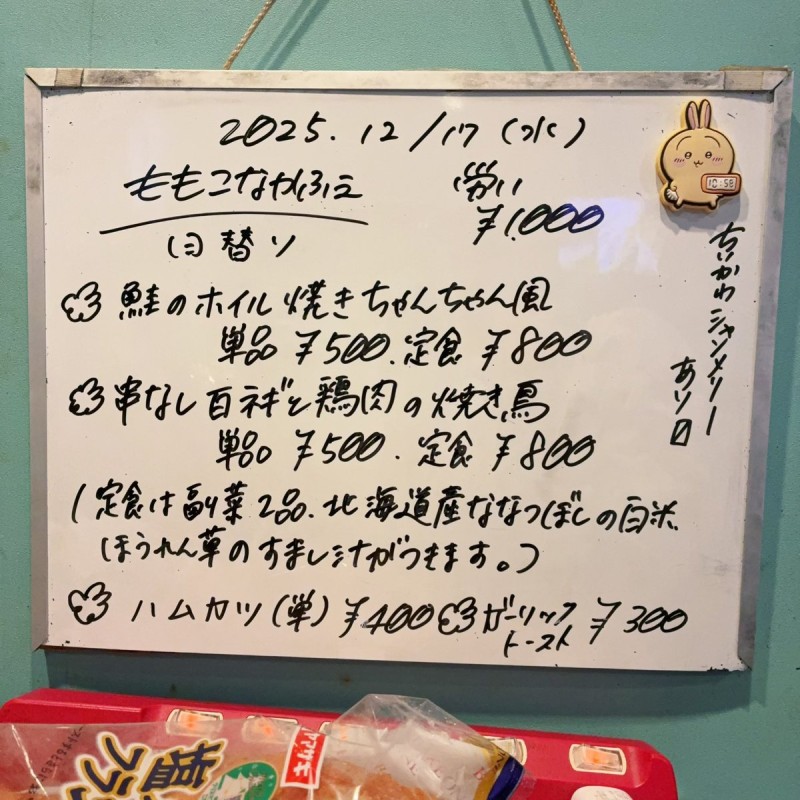 2025.12/17(水)
ももこなかふえ
労い
¥1,000
日替り
鮭のホイル焼きちゃんちゃん風
単品 ¥500.定食 ¥800
串なし白ネギと鶏肉の焼き鳥
単品 ¥500.定食 ¥800
(定食は副菜2品.北海道産ななつぼしの白米
ほうれん草のすまし汁がつきます。)
ハムカツ(単)¥400
ガーリック
トースト ¥300
ちいかわ シャンメリー
あり〼
10:58